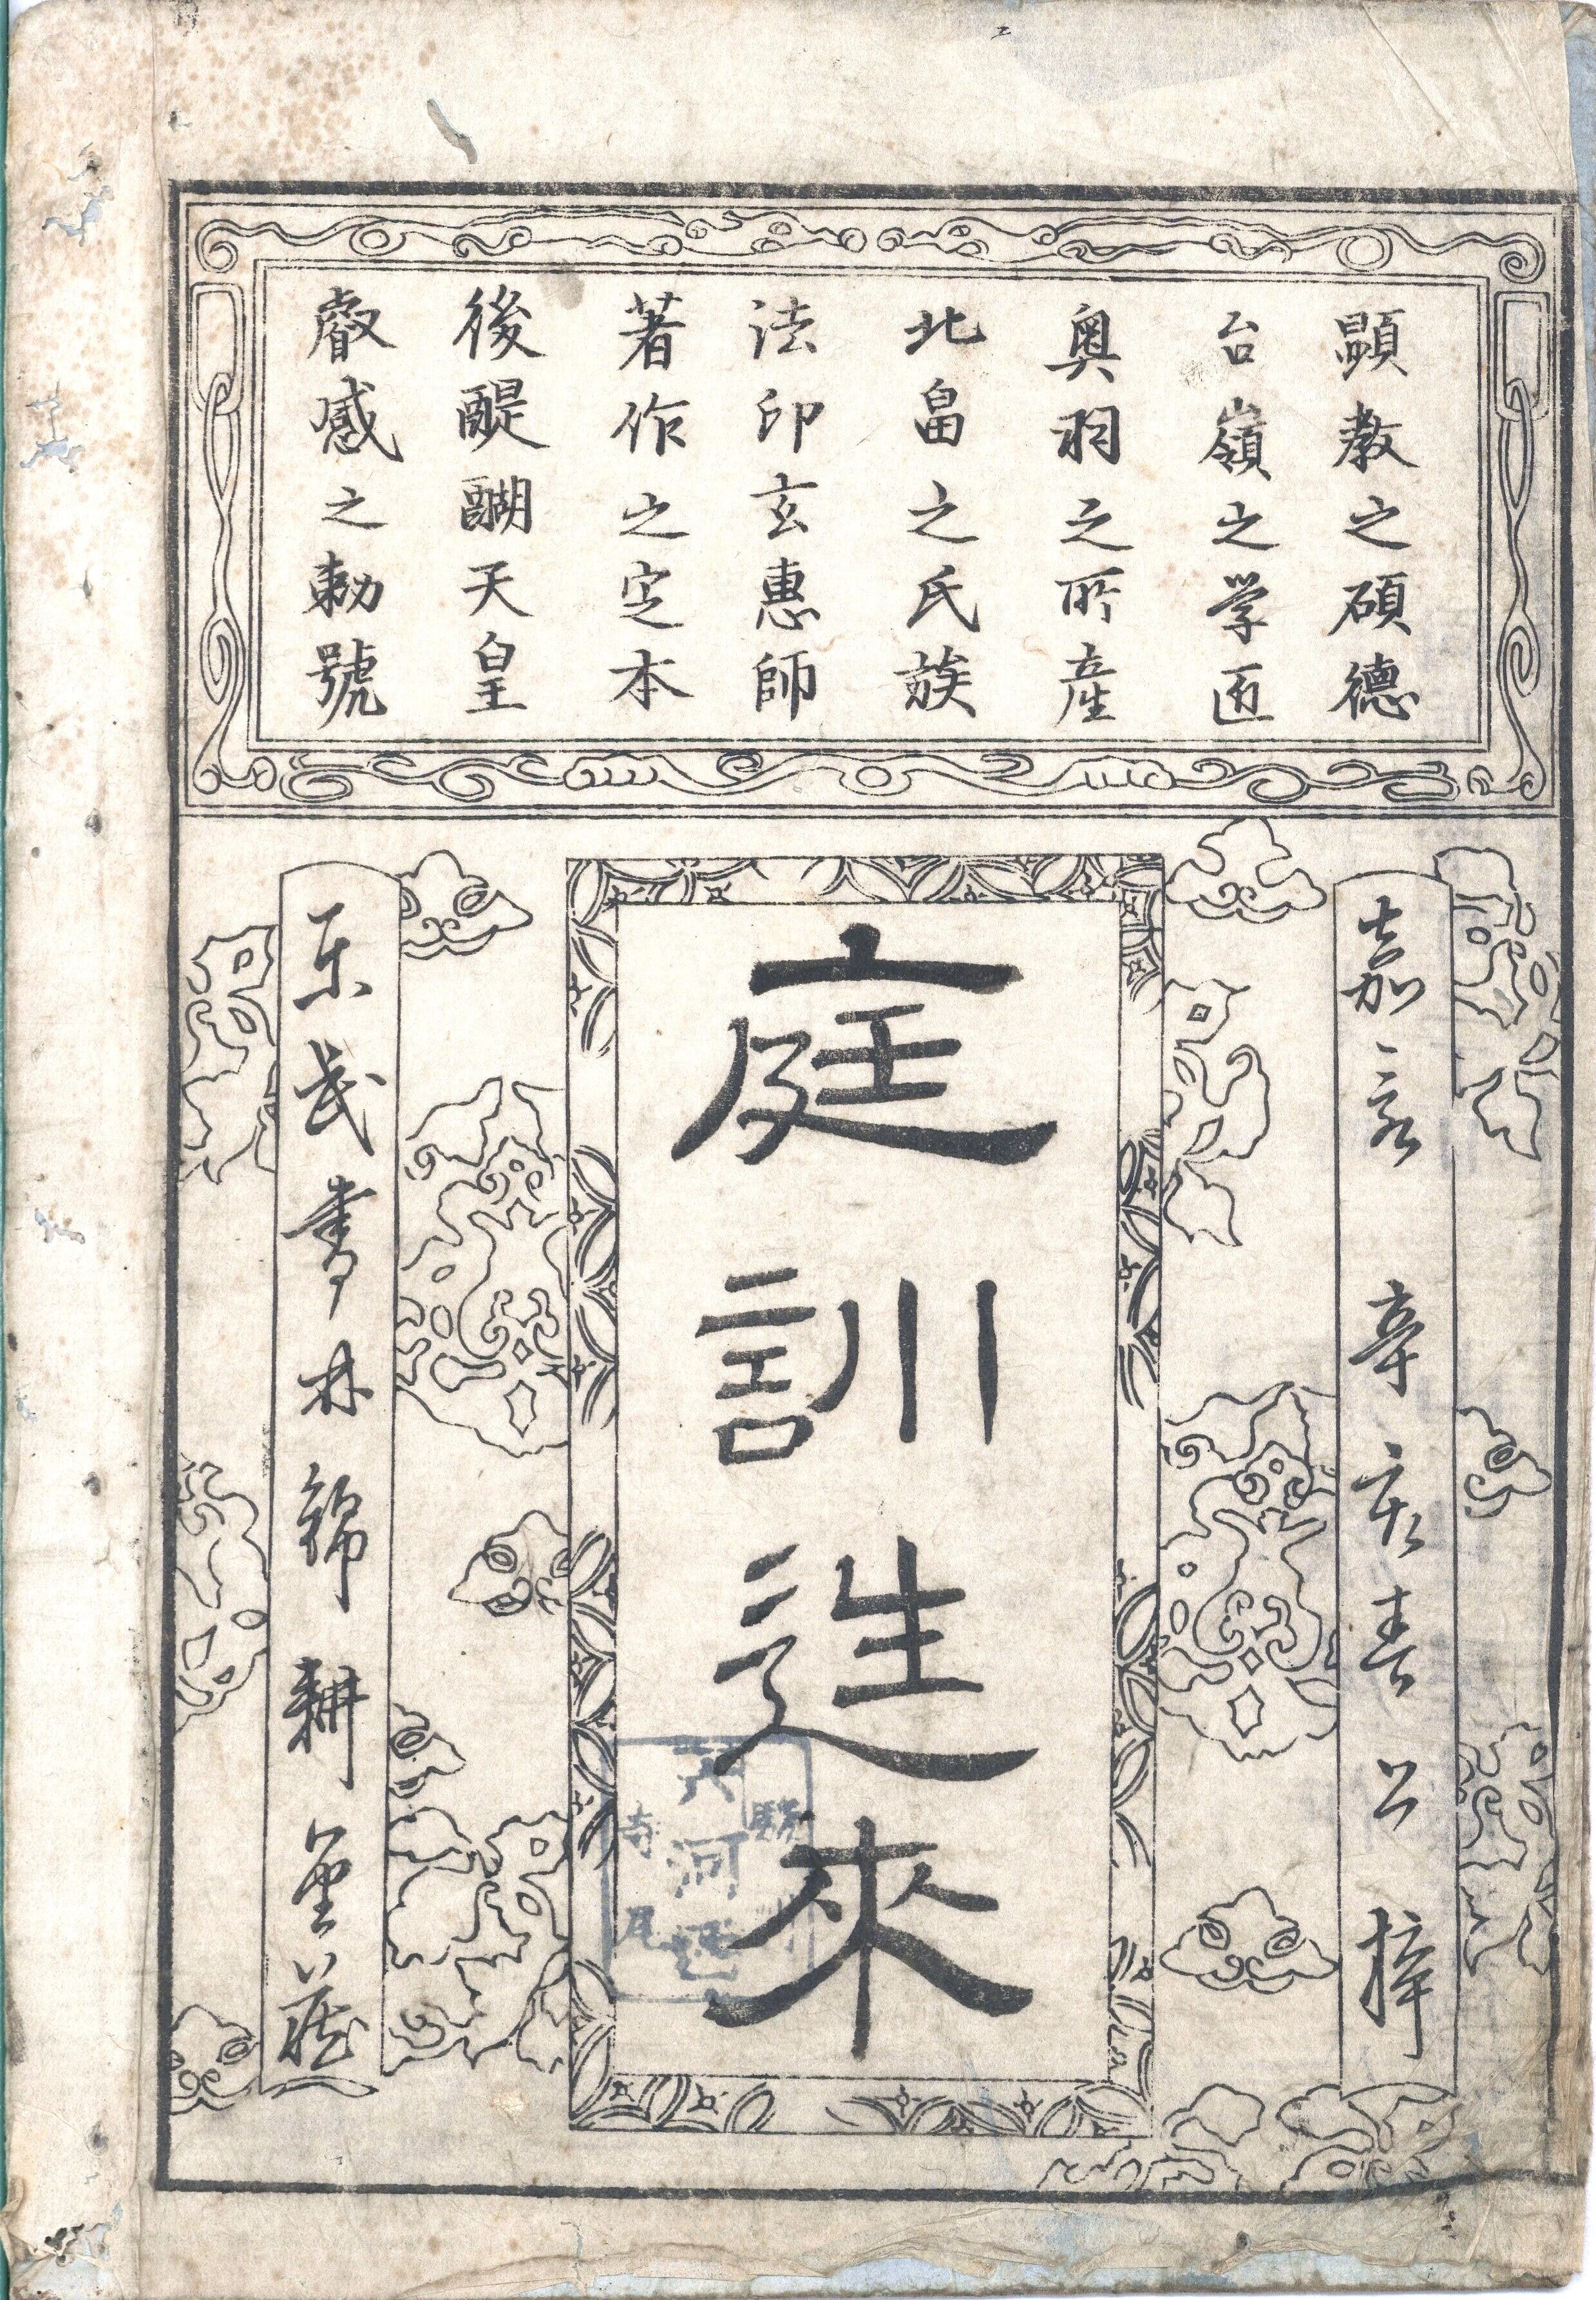 顕教之碩德
台嶺之学匠
奥羽之所産
北畠之氏族
法印玄惠師
著作之定本
後醍醐天皇
叡感之勅號
嘉永 辛亥春公梓
庭訓徃來
東武書林錦耕堂蔵
駿
大河
寺尾